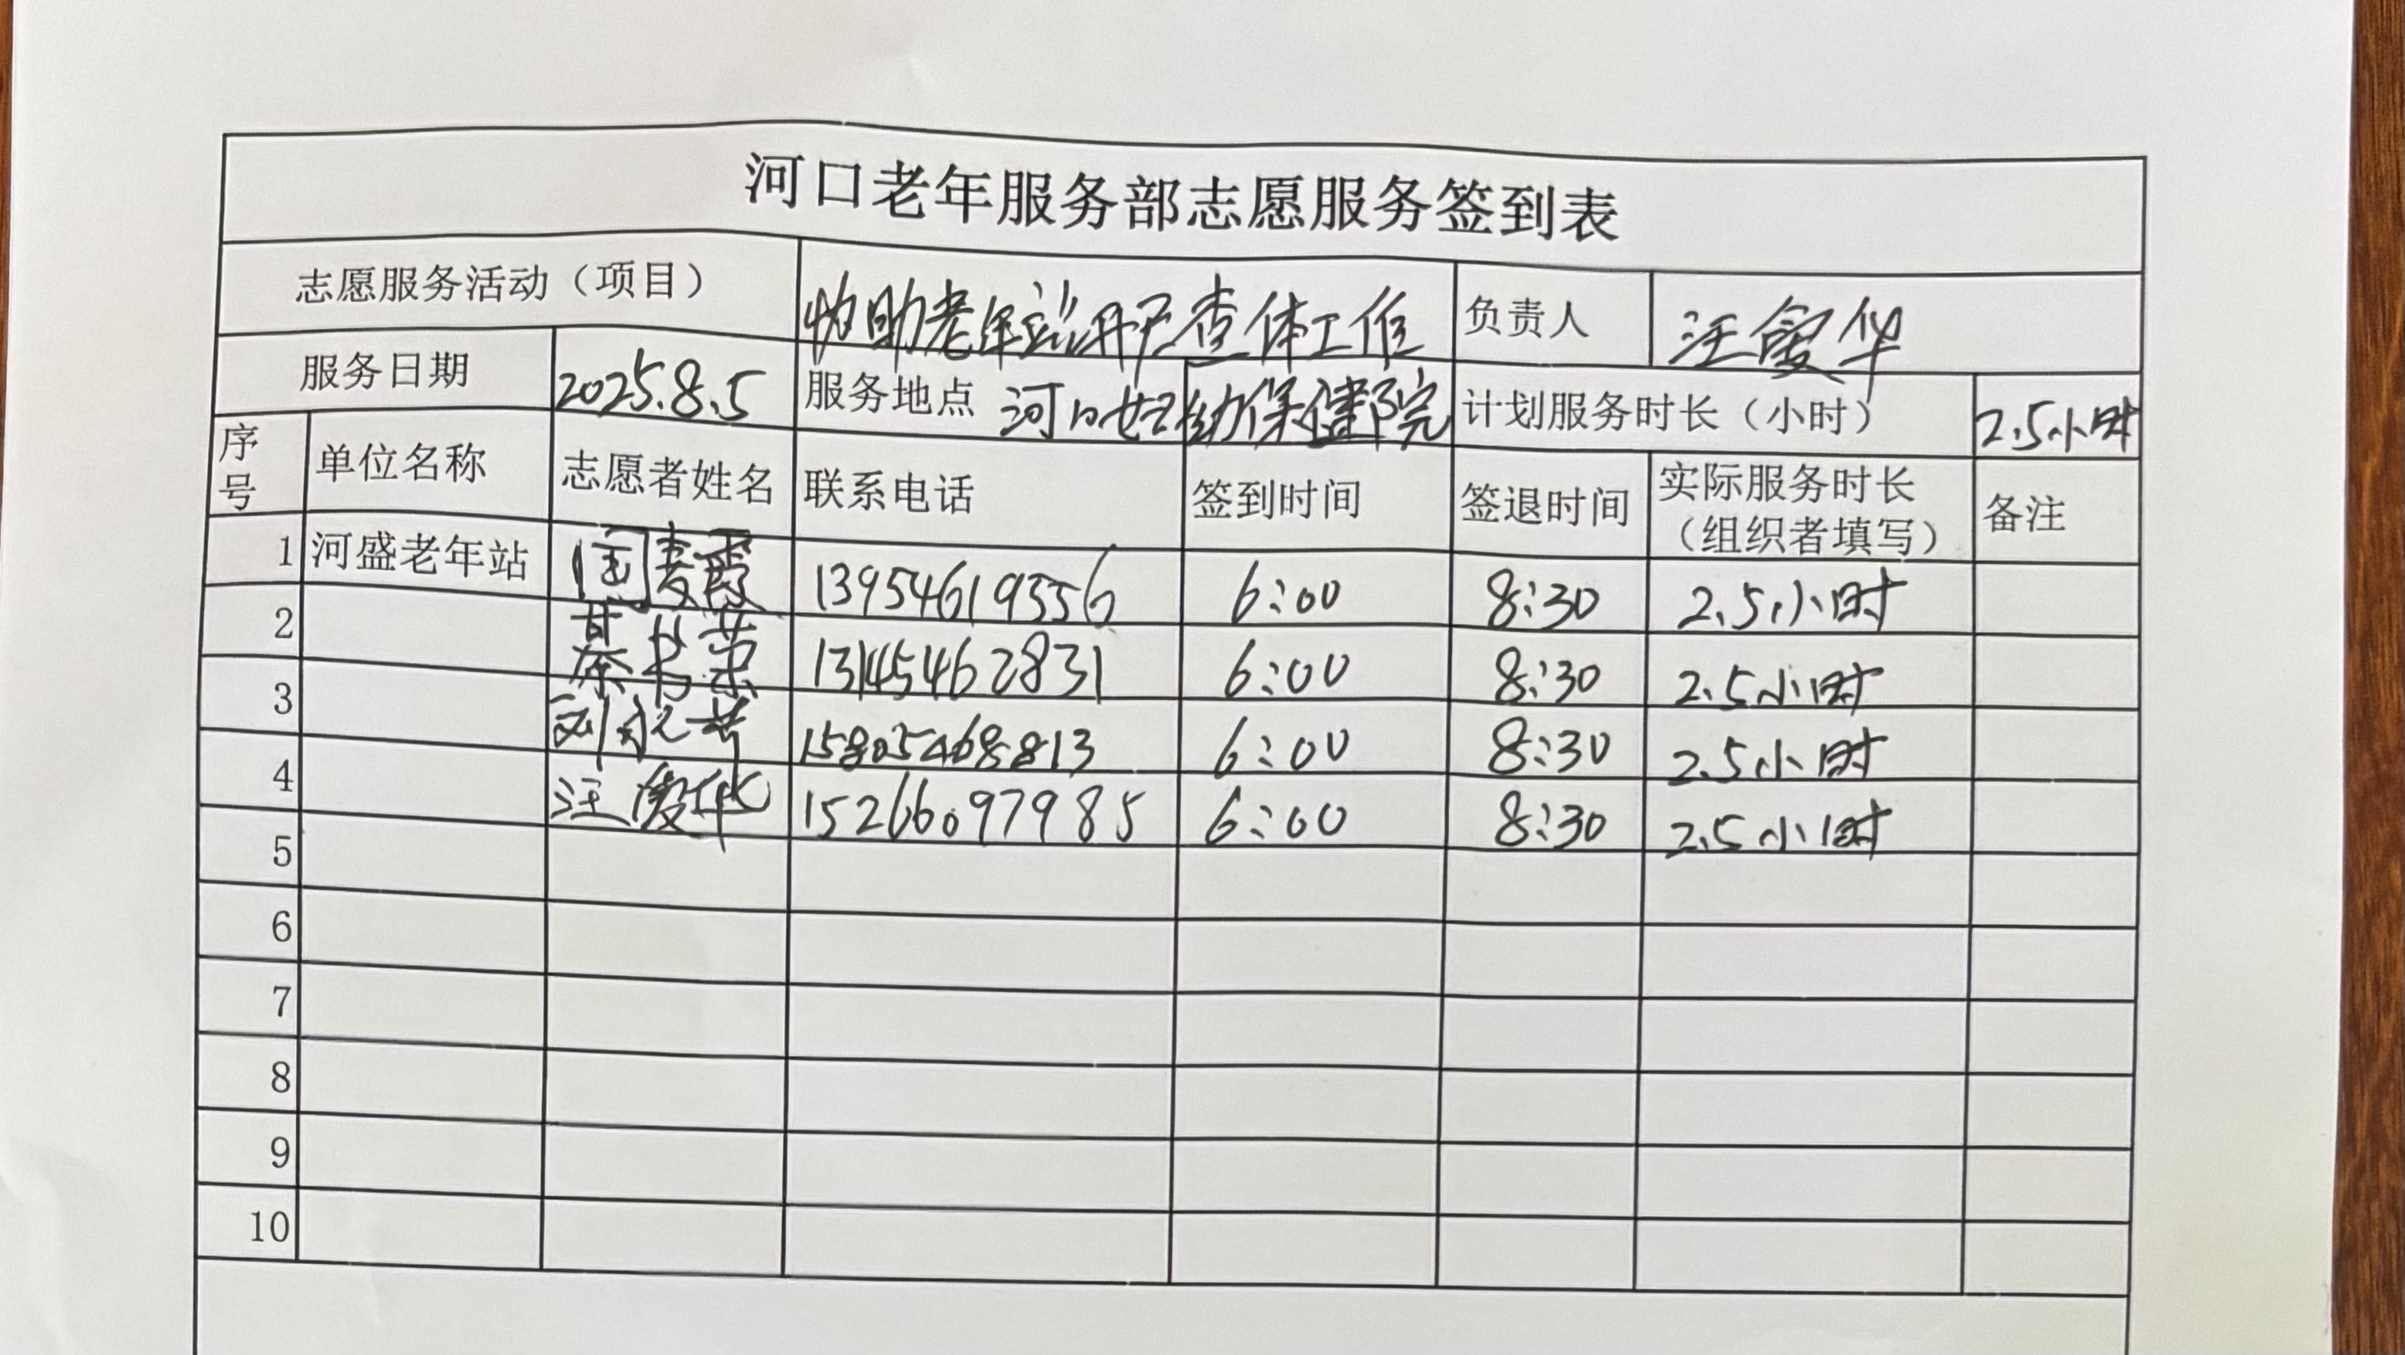 河口老年服务部志愿服务签到表
志愿服务活动（项目） 协助老年站开展查体工作 负责人 汪爱华
服务日期 2025.8.5 服务地点 河口妇幼保健院 计划服务时长（小时） 2.5小时
序号 单位名称 志愿者姓名 联系电话 签到时间 签退时间 实际服务时长（组织者填写） 备注
1 河盛老年站 国秀霞 13954619556 6:00 8:30 2.5小时
2 蔡书荣 13145462831 6:00 8:30 2.5小时
3 15805468813 6:00 8:30 2.5小时
4 汪爱华 15266097985 6:00 8:30 2.5小时
5
6
7
8
9
10